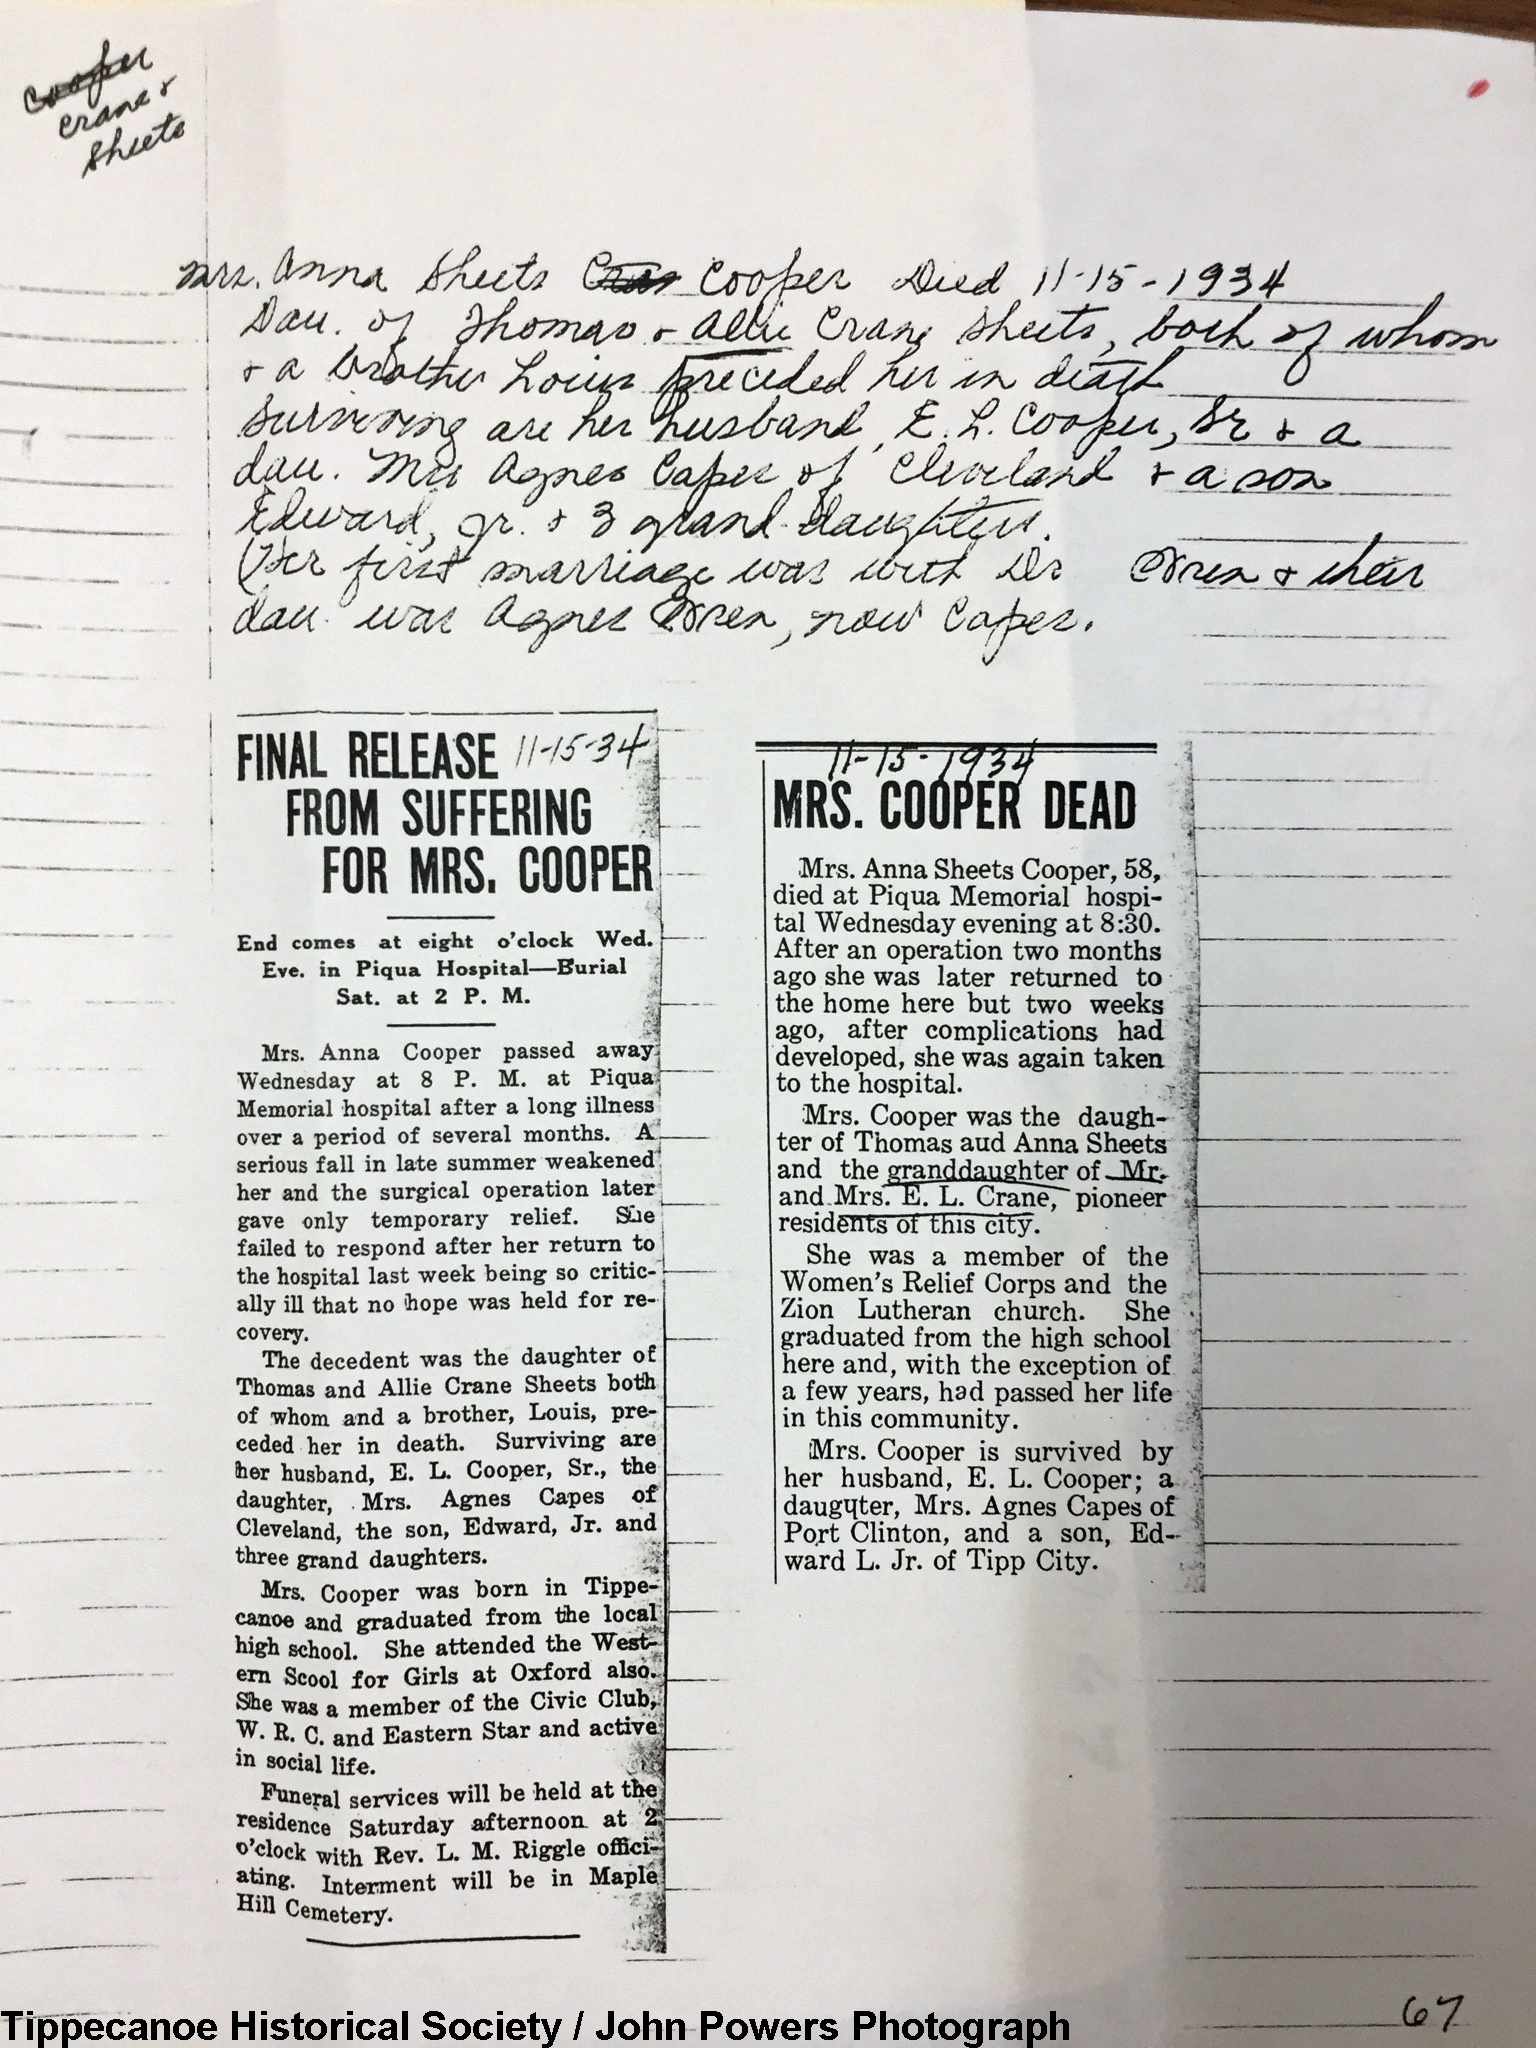 Cooper
Crane &
Sheets
Mrs. Anna Sheets Cooper Died 11-15-1934
Dau. of Thomas & Allie Crane Sheets, both of whom
& a brother Louis preceded her in death
Surviving are her husband, E. L. Cooper, Sr & a
dau. Mrs Agnes Capes of Cleveland & a son
Edward, Jr. & 3 grand-daughters.
(Her first marriage was with Dr & their
dau. was Agnes , now Capes.
FINAL RELEASE 11-15-34
FROM SUFFERING
FOR MRS. COOPER
End comes at eight o'clock Wed.
Eve. in Piqua Hospital—Burial
Sat. at 2 P. M.
Mrs. Anna Cooper passed away
Wednesday at 8 P. M. at Piqua
Memorial hospital after a long illness
over a period of several months. A
serious fall in late summer weakened
her and the surgical operation later
gave only temporary relief. She
failed to respond after her return to
the hospital last week being so critic-
ally ill that no hope was held for re-
covery.
The decedent was the daughter of
Thomas and Allie Crane Sheets both
of whom and a brother, Louis, pre-
ceded her in death. Surviving are
her husband, E. L. Cooper, Sr., the
daughter, Mrs. Agnes Capes of
Cleveland, the son, Edward, Jr. and
three grand daughters.
Mrs. Cooper was born in Tippe-
canoe and graduated from the local
high school. She attended the West-
ern Scool for Girls at Oxford also.
She was a member of the Civic Club,
W. R. C. and Eastern Star and active
in social life.
Funeral services will be held at the
residence Saturday afternoon at 2
o'clock with Rev. L. M. Riggle offici-
ating. Interment will be in Maple
Hill Cemetery.
11-15-1934
MRS. COOPER DEAD
Mrs. Anna Sheets Cooper, 58,
died at Piqua Memorial hospi-
tal Wednesday evening at 8:30.
After an operation two months
ago she was later returned to
the home here but two weeks
ago, after complications had
developed, she was again taken
to the hospital.
Mrs. Cooper was the daugh-
ter of Thomas aud Anna Sheets
and the granddaughter of Mr.
and Mrs. E. L. Crane, pioneer
residents of this city.
She was a member of the
Women's Relief Corps and the
Zion Lutheran church. She
graduated from the high school
here and, with the exception of
a few years, had passed her life
in this community.
Mrs. Cooper is survived by
her husband, E. L. Cooper; a
daugɥter, Mrs. Agnes Capes of
Port Clinton, and a son, Ed-
ward L. Jr. of Tipp City.
67
Tippecanoe Historical Society / John Powers Photograph